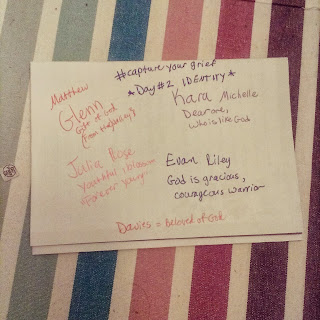 #capture your grief
*Day #2 IDENTITY*
Matthew
Glenn
Gift of God
(From the valley)
Kara Michelle
Dear one,
who is like God
Julia Rose
Youthful, blossom
Forever young
Evan Riley
God is gracious,
courageous warrior
Davies = Beloved of God